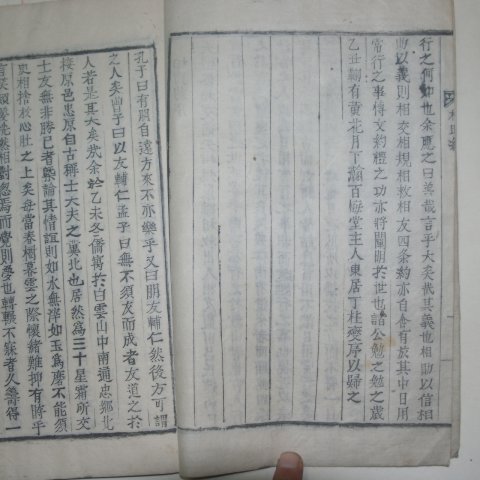 行之何如也余應之曰善哉言乎大矣哉其義也相助以信相
助以義則相交相規相救相友四条約亦自含有於其中日用
常行之事傳文約禮之功亦將闡明於世也請公勉之勉之歲
乙丑鞠有黃花月下瀚百梅堂主人東居丁柱燮序以歸之
孔子曰有朋自遠方來不亦樂乎又曰朋友輔仁然後方可謂
之人矣曾子曰以友輔仁孟子曰無不須友而成者友道之於
人若是其大矣哉余於乙未冬僑寓於白雲山中南通忠鄉北
接原邑忠原自古稱士大夫之冀北也居然為三十星霜所交
士友無非勝己者槩論其情誼則如水無滓如玉為磨不能須
臾相捨於心肚之上矣每當春樹暮雲之際懷緒難抑有時乎
言笑顏髮恍然相對忽焉而覺則夢也轉輾不寐者久籌得一